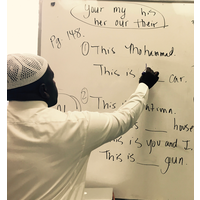 your my his
her our their
Pg 148.
① This Mohammed.
This is car.
② This is
This is ___ house
This is you and I.
This is ___ gun.